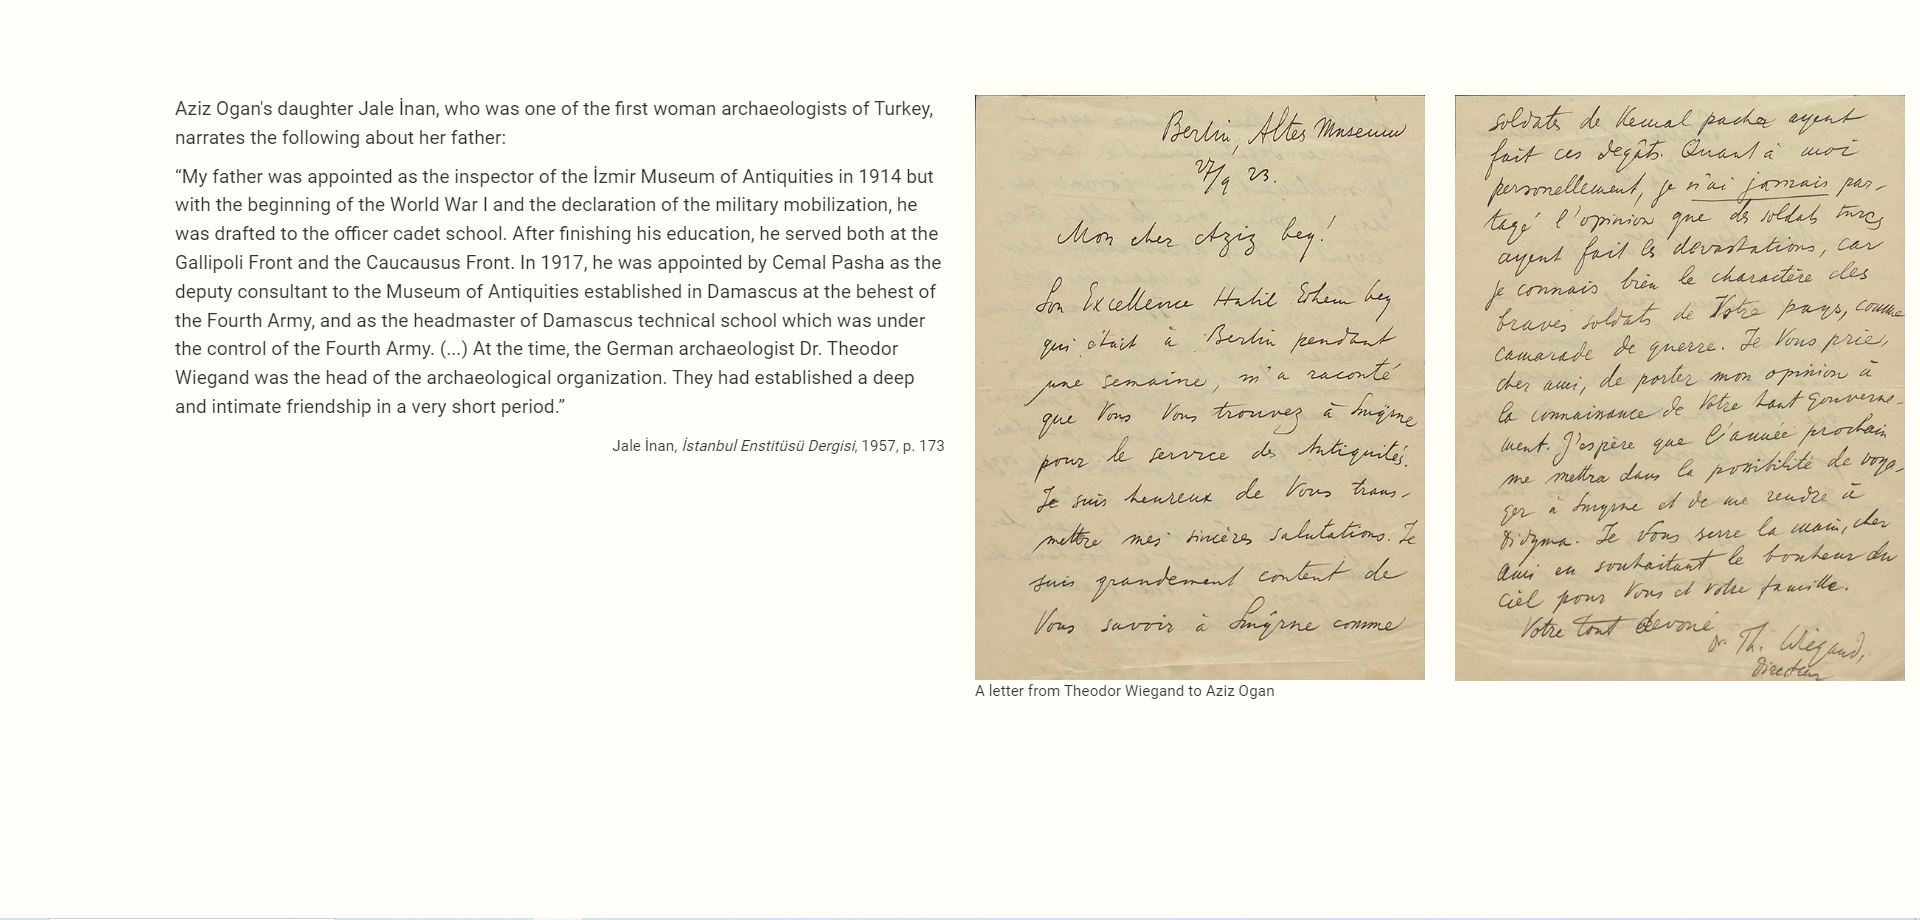 Aziz Ogan's daughter Jale İnan, who was one of the first woman archaeologists of Turkey,
narrates the following about her father:
“My father was appointed as the inspector of the İzmir Museum of Antiquities in 1914 but
with the beginning of the World War I and the declaration of the military mobilization, he
was drafted to the officer cadet school. After finishing his education, he served both at the
Gallipoli Front and the Caucausus Front. In 1917, he was appointed by Cemal Pasha as the
deputy consultant to the Museum of Antiquities established in Damascus at the behest of
the Fourth Army, and as the headmaster of Damascus technical school which was under
the control of the Fourth Army. (...) At the time, the German archaeologist Dr. Theodor
Wiegand was the head of the archaeological organization. They had established a deep
and intimate friendship in a very short period.”
Jale İnan, İstanbul Enstitüsü Dergisi, 1957, p. 173
Berlin, Altes Museum
27/9 23.
Mon cher Aziz bey!
Son Excellence Halil Edhem bey
qui était à Berlin pendant
une semaine, m'a raconté
que Vous Vous trouvez à Smÿrne
pour le service des Antiquités.
Je suis heureux de Vous trans-
mettre mes sincères salutations. Je
suis grandement content de
Vous savoir à Smÿrne comme
A letter from Theodor Wiegand to Aziz Ogan
soldats de Kemal pacha ayent
fait ces degâts. Quant à moi
personellement, je n'ai jamais par-
tagé l'opinion que des soldats turcs
ayent fait les dévastations, car
je connais bien le charactère des
braves soldats de Votre pays, comme
camarade de guerre. Je Vous prie,
cher ami, de porter mon opinion à
la connaissance de Votre haut Gouverne-
ment. J'espère que l'année prochain
me mettra dans la possibilité de voya-
ger à Smyrne et de me rendre à
Didyma. Je Vous serre la main, cher
ami en souhaitant le bonheur du
ciel pour Vous et votre famille.
Votre tout devoué
Dr. Th. Wiegand,
Directeur